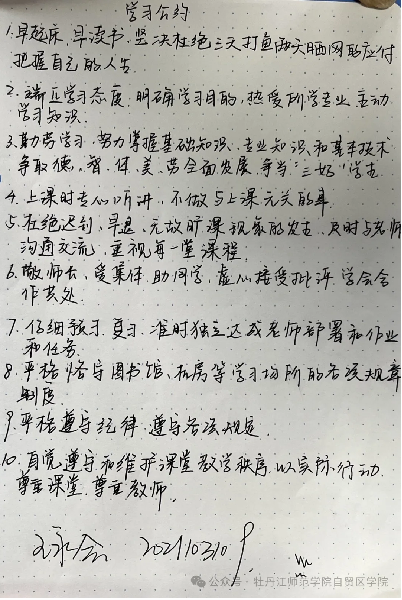 学习公约
1.早起床,早读书,坚决杜绝三天打鱼两天晒网的应付
把握自己的人生
2.端正学习态度,明确学习目的,热爱所学专业,主动
学习知识.
3.勤劳学习,努力掌握基础知识、专业知识、和基本技术
争取德、智、体、美、劳全面发展,争当"三好"学生
4.上课时专心听讲,不做与上课无关的事.
5.杜绝迟到、早退、无故旷课现象的发生,及时与老师
沟通交流,重视每一堂课程.
6.敬师长,爱集体,助同学,虚心接受批评,学会合
作共处.
7.仔细预习、复习,准时独立达成老师部署和作业
和任务.
8.严格恪守图书馆、机房等学习场所的各项规章
制度
9.严格遵守纪律,遵守各项规定.
10.自觉遵守和维护课堂教学秩序,以实际行动
尊重课堂,尊重教师.
20210310
公众号·牡丹江师范学院自贸区学院